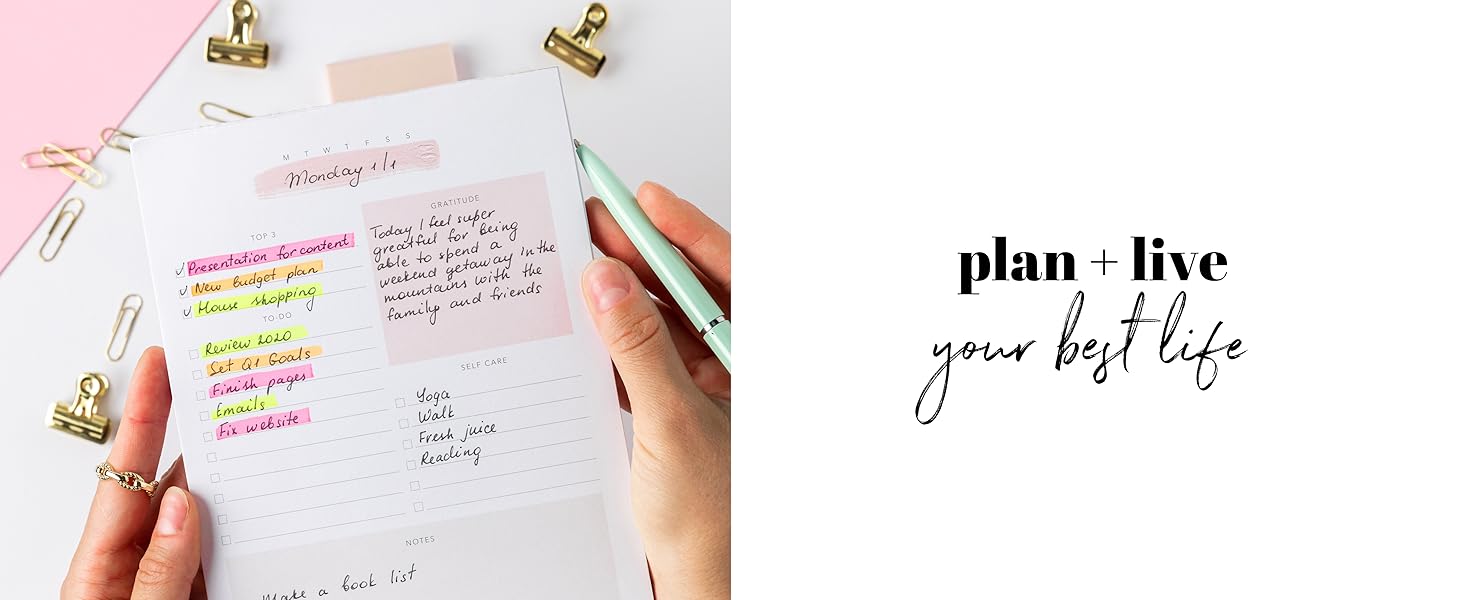 M T W T F S S
Monday 1/1
TOP 3
Presentation for content
New budget plan
House shopping
TO-DO
Review 2020
Set Q1 Goals
Finish pages
Emails
Fix website
GRATITUDE
Today I feel super
greatful for being
able to spend a
weekend getaway in the
mountains with the
family and friends
SELF CARE
Yoga
Walk
Fresh juice
Reading
NOTES
Make a book list
plan + live
your best life